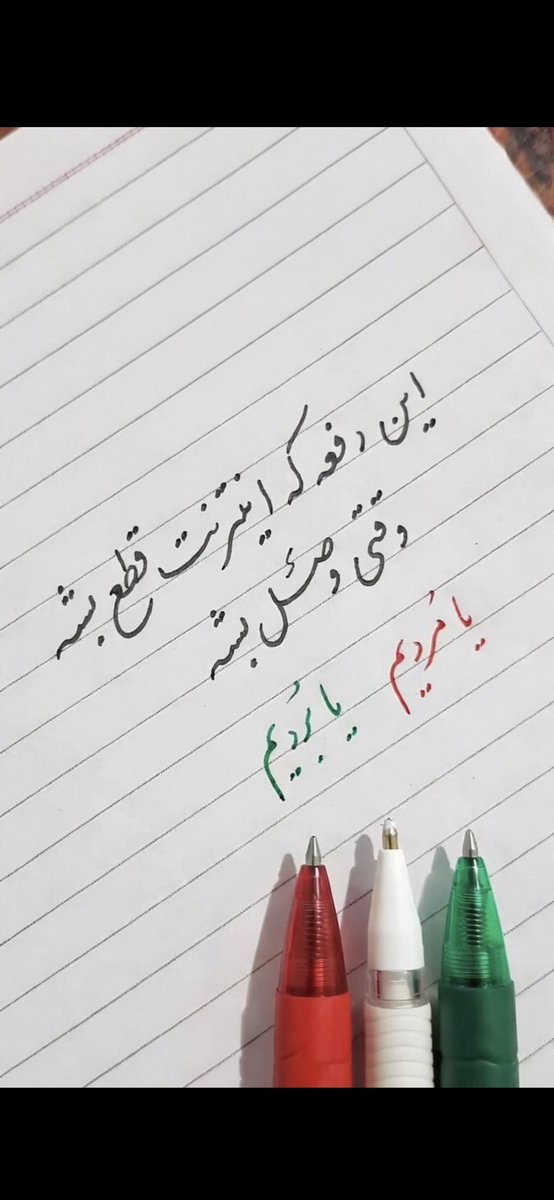 این دفعه که اینترنت قطع بشه
وقتی وصل بشه
یا مُردیم
یا بُردیم